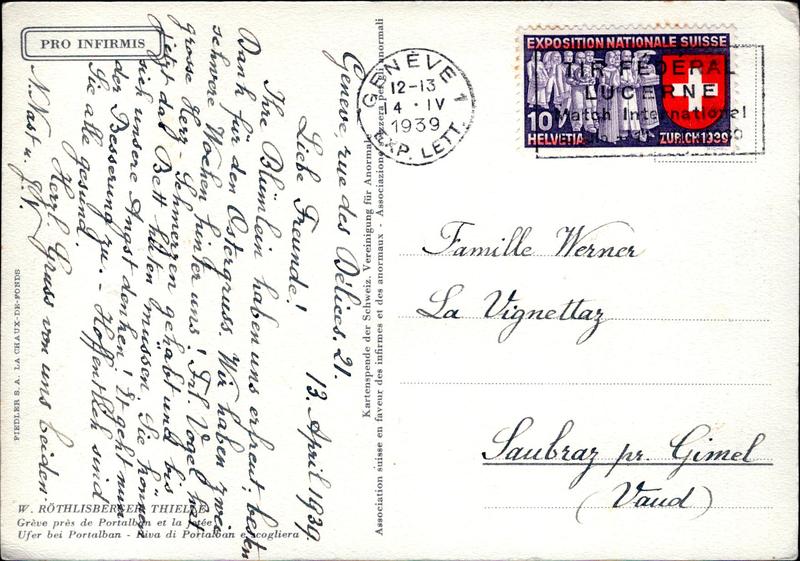 PRO INFIRMIS
Genève, rue des Délices. 21.
13. April 1939.
Liebe Freunde!
Ihre Blümlein haben uns erfreut: besten
Dank für den Ostergruss. Wir haben zwei
schwere Wochen hinter uns! Frl. Vogel hat
grosse Herz-Schmerzen gehabt und bis
jetzt das Bett hüten müssen. Sie können
sich unsere Angst denken! Es geht nun
der Besserung zu. - Hoffentlich sind
Sie alle gesund.
Herzl. Gruss von uns beiden
N. Nast u. J.V.
FIEDLER S. A. LA CHAUX-DE-FONDS
W. RÖTHLISBERGER, THIELLE
Grève près de Portalban et la jetée
Ufer bei Portalban - Riva di Portalban e scogliera
Kartenspende der Schweiz. Vereinigung für Anormale
Association suisse en faveur des infirmes et des anormaux - Associazione svizzera per gli anormali
GENÈVE 1
12-13
4 · IV
1939
EXP. LETT.
EXPOSITION NATIONALE SUISSE
10
HELVETIA
ZURICH 1939
TIR FÉDÉRAL
LUCERNE
Match International
Famille Werner
La Vignettaz
Saubraz pr. Gimel
(Vaud)